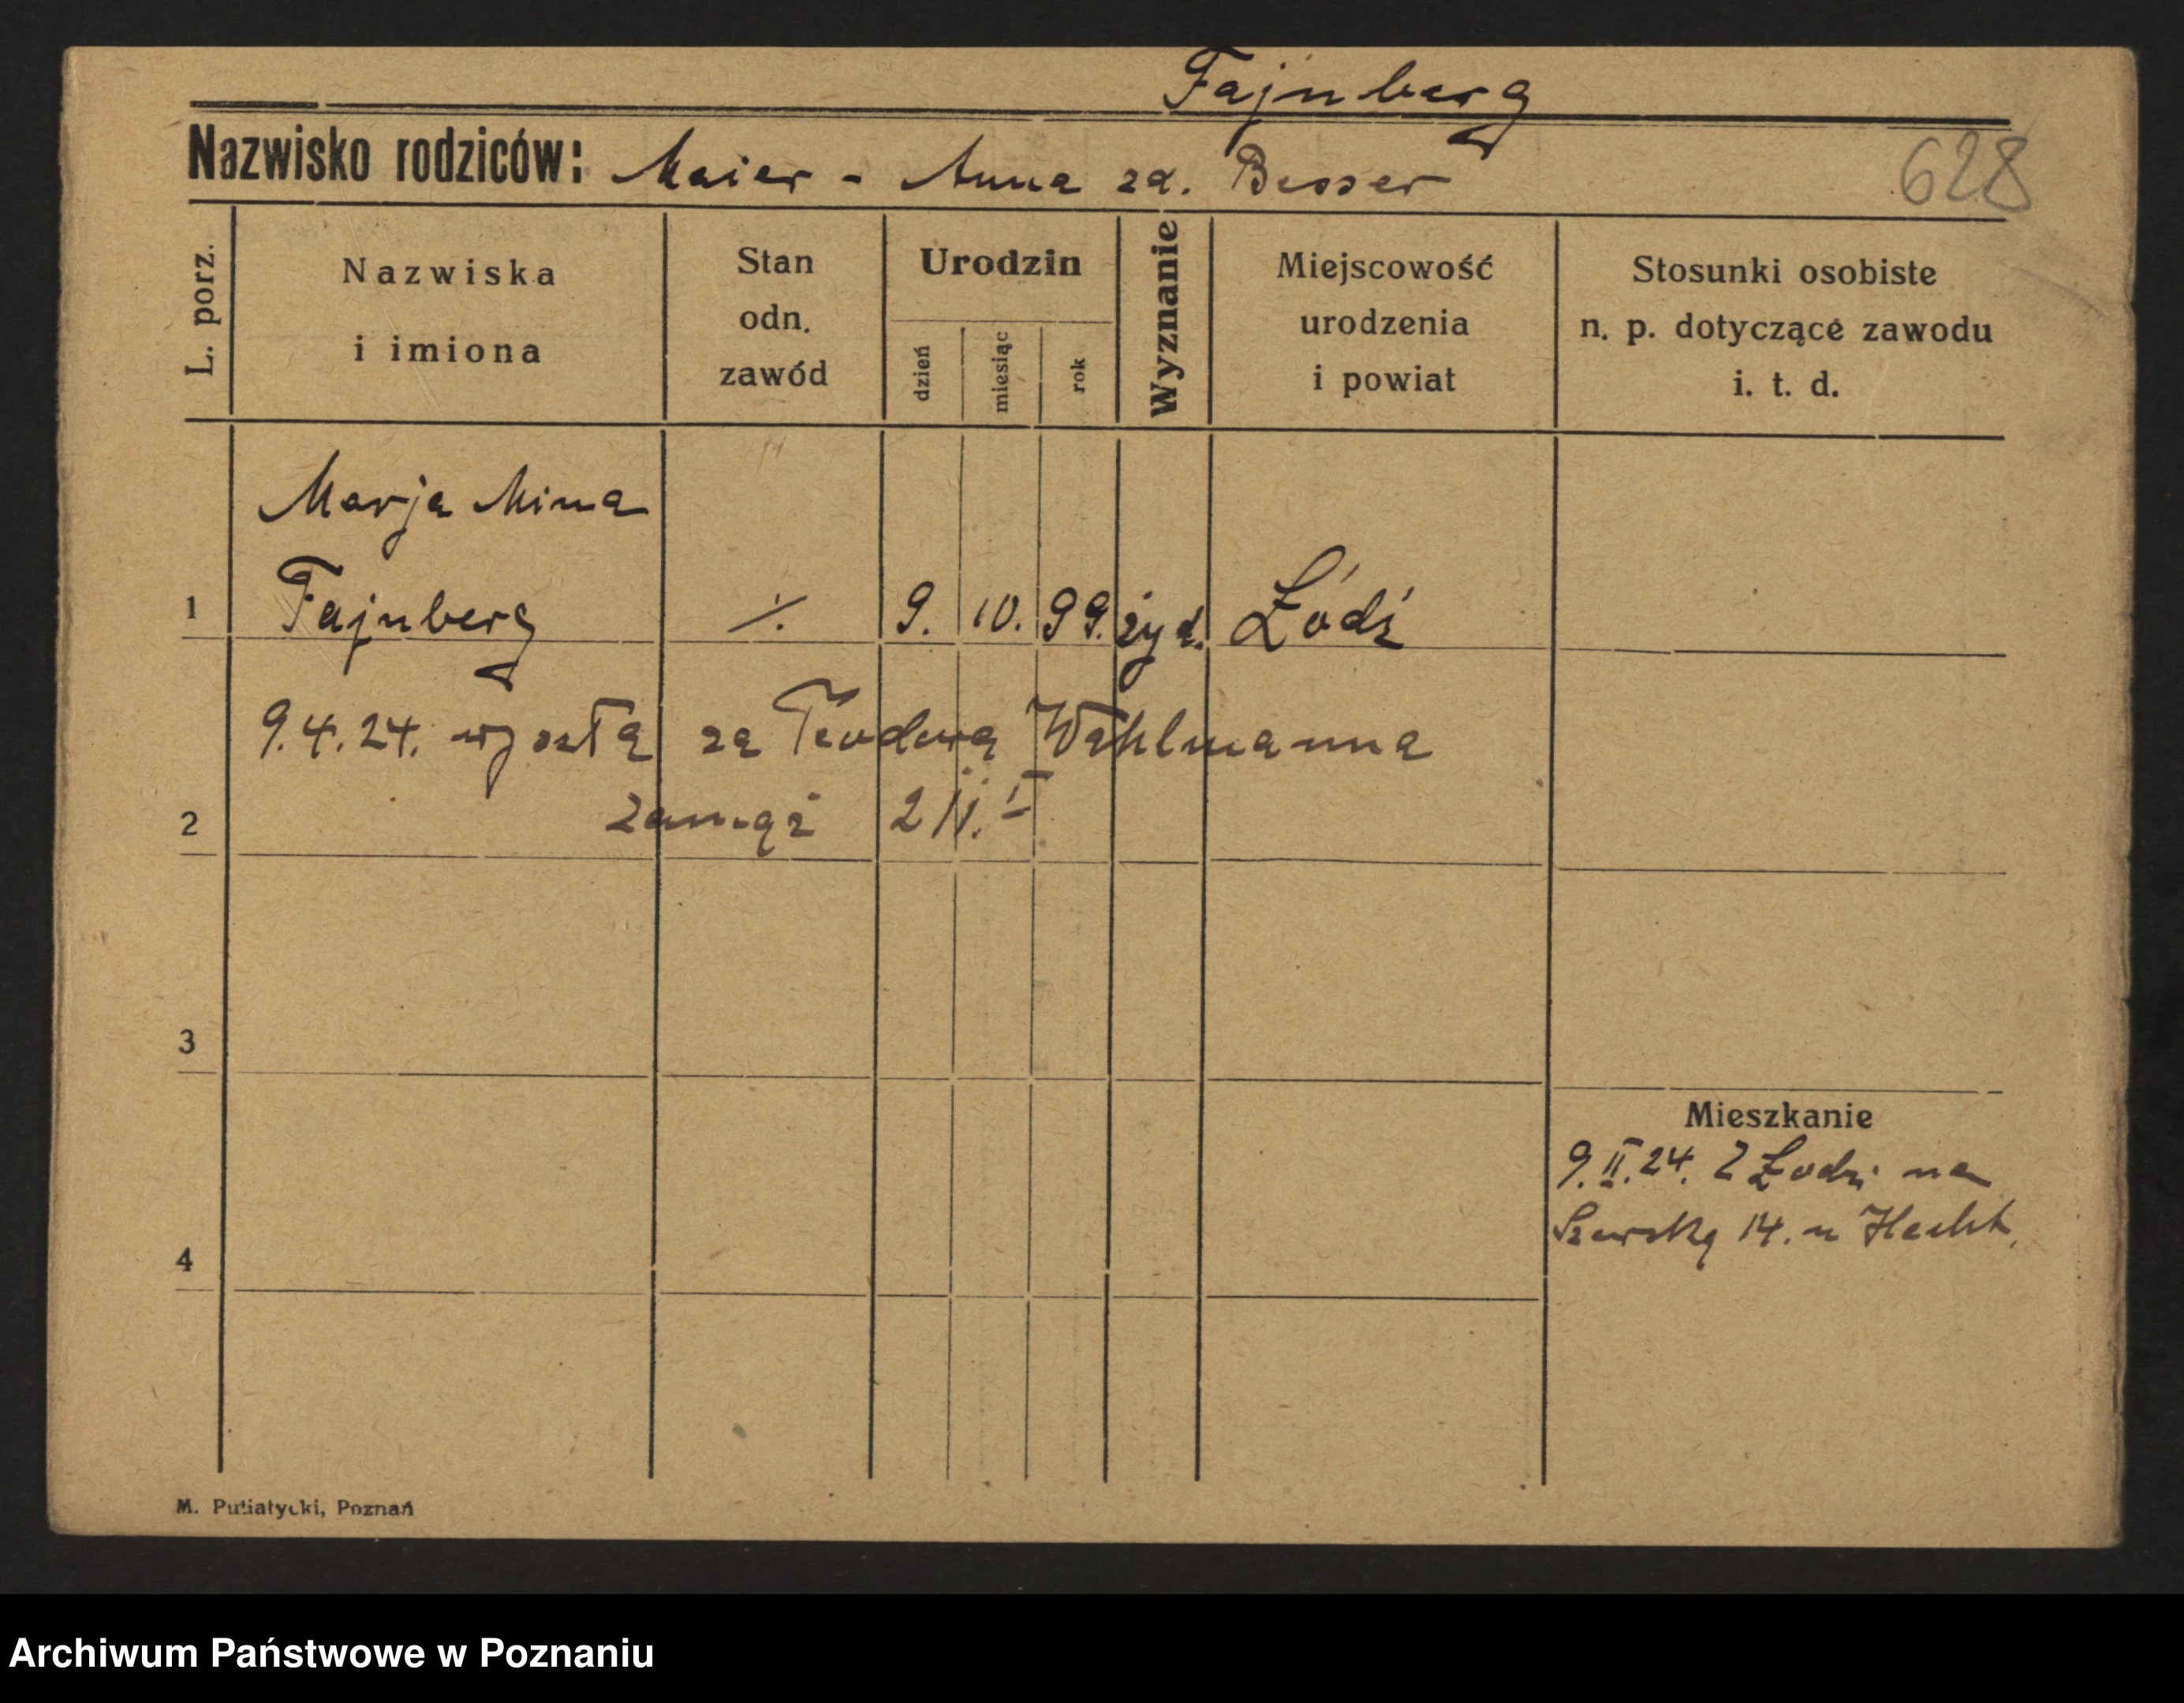 Fajnberg
Nazwisko rodziców: Maier - Anna zd. Besser
628
L. porz.
Nazwiska i imiona
Stan odn. zawód
Urodzin
dzień
miesiąc
rok
Wyznanie
Miejscowość urodzenia i powiat
Stosunki osobiste n. p. dotyczące zawodu i. t. d.
Marja Mina
1 Fajnberg ./. 9. 10. 99. żyd. Łódź
9.4.24. wyszła za Teodora Wahlmanna
2 zamąż
3
Mieszkanie
9.II.24. Z Łodzi na
Szewską 14. u Hecht.
4
M. Putiatycki, Poznań
Archiwum Państwowe w Poznaniu